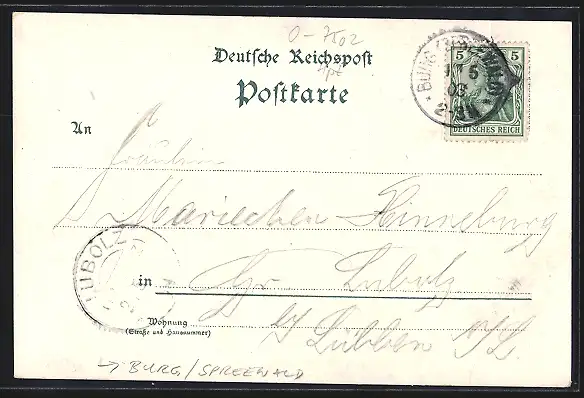 0-7502
Deutsche Reichspost
Postkarte
5 5
DEUTSCHES REICH
BURG (SPREEWALD)
5
03
An
Fräulein
Mariechen Hinneburg
in Gr. Lubolz
b/ Lübben N/L.
LUBOLZ
Wohnung
(Straße und Hausnummer)
→ BURG / SPREEWALD